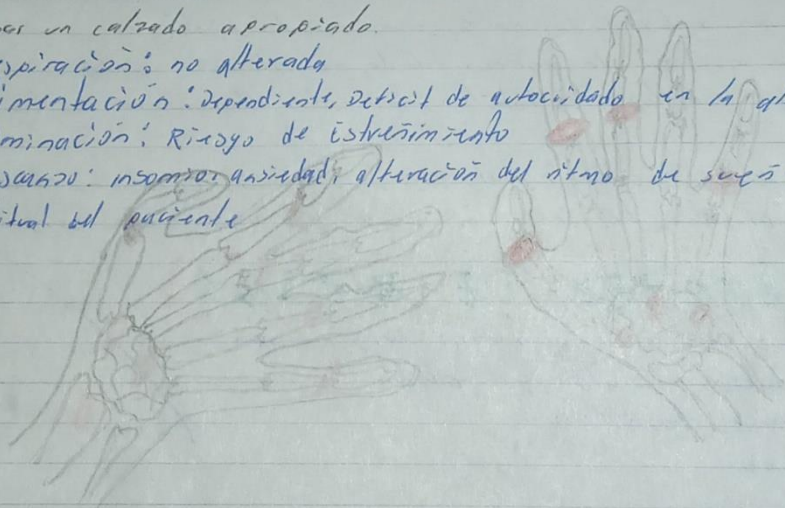 un calzado apropiado.
spiración: no alterada
imentación: Dependiente, Deficit de autocuidado en la al
minación: Riesgo de istreñimiento
scanso: insomnio, ansiedad, alteración del ritmo de sueñ
itual del paciente